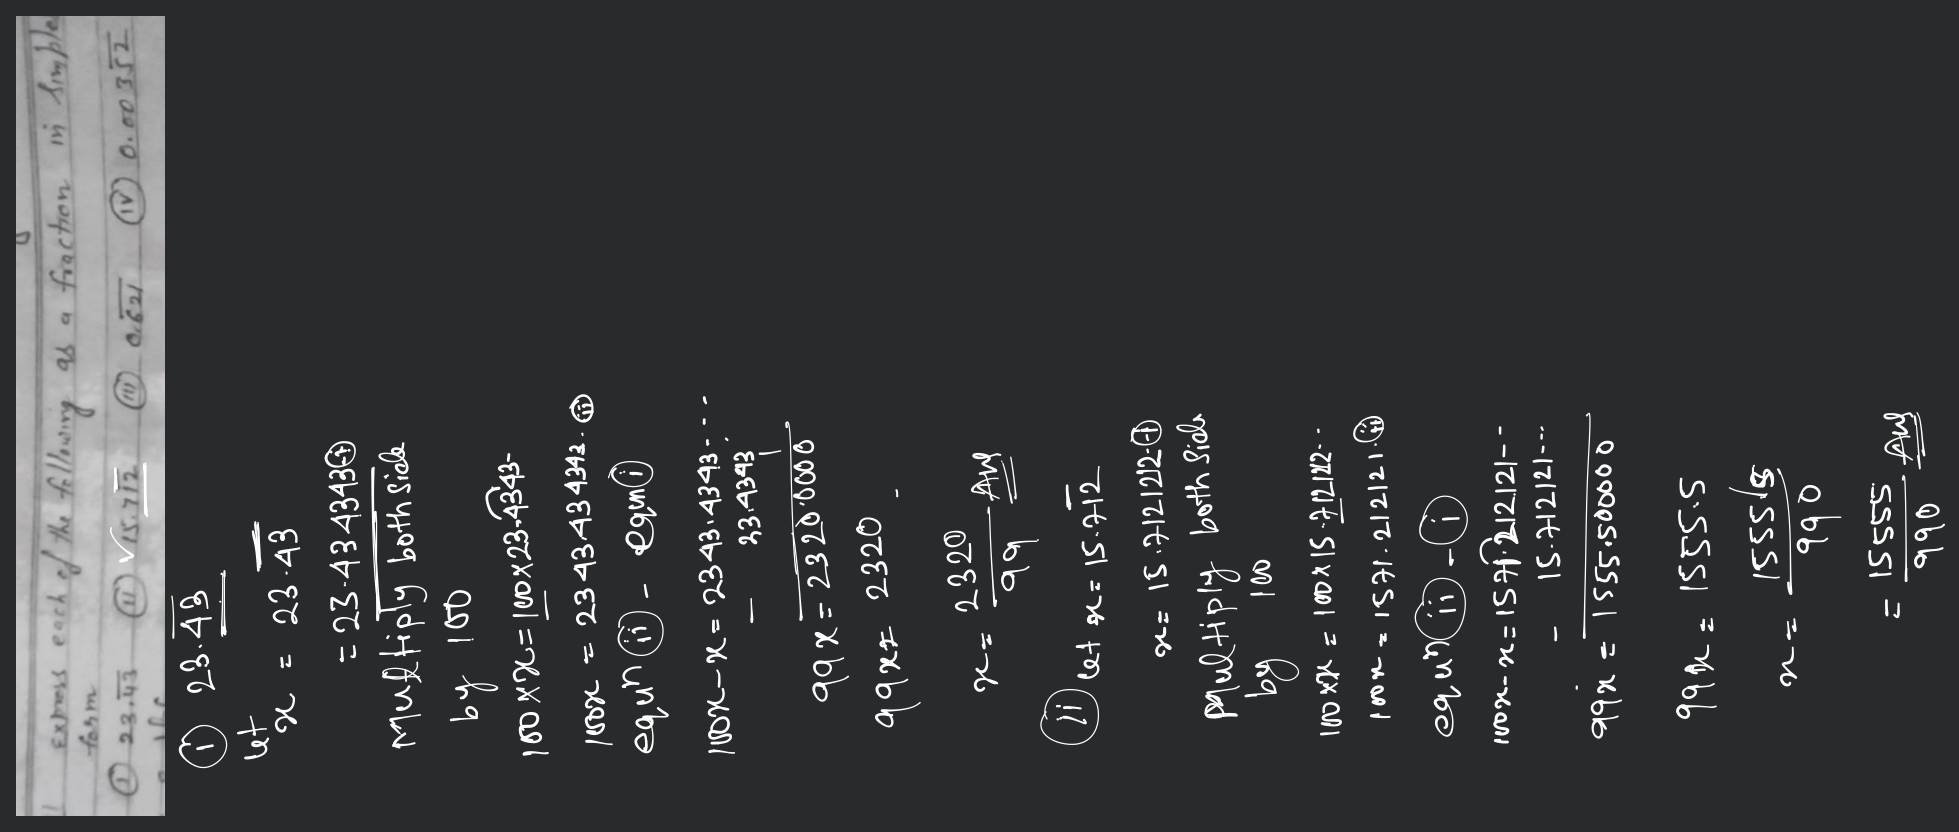 Express each of the following as a fraction in simple
form
(i) 23.4̅3̅ (ii) 15.71̅2̅ (iii) 0.6̅2̅1̅ (iv) 0.0035̅2̅
(i) 23.4̅3̅
let
x = 23.4̅3̅
= 23.434343 (i)
Multiply both side
by 100
100×x=100×23.4343-
100x = 2343.434343. (ii)
equⁿ (ii) - equⁿ (i)
100x-x = 2343.4343---
- 23.4343
99x = 2320.0000
99x= 2320.
x = 2320/99 Ans
(ii) let x = 15.71̅2̅
x= 15.7121212-(i)
Multiply both side
by 100
100×x = 100×15.71212..
100x = 1571.212121.(ii)
equⁿ (ii) - (i)
100x-x=1571.212121--
- 15.712121---
99x = 1555.500000
99x = 1555.5
x = 1555.5/990
= 15555/990 Ans